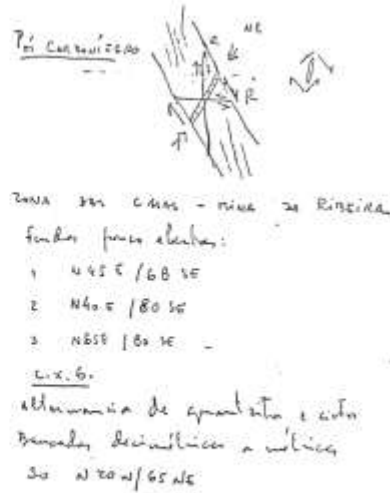 Pós Carbonífero
NE
R
R
ZONA DAS CASAS - MINA DA RIBEIRA
Fendas pouco abertas:
1 N45E / 68 SE
2 N40E / 80 SE
3 N65E / 80 SE
L.X.6.
Alternancia de quartzito e xisto
Bancadas decimétricas a métricas
So N20W/65NE